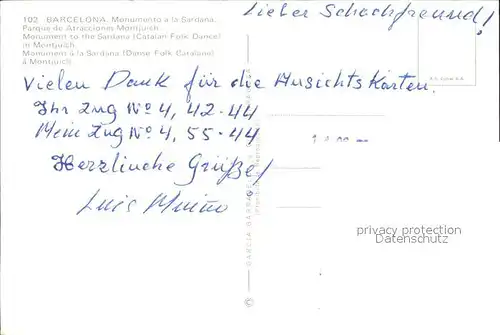 102 BARCELONA. Monumento a la Sardana.
Parque de Atracciones Montjuich.
Monument to the Sardana (Catalan Folk Dance)
in Montjuich.
Monument à la Sardana (Danse Folk Catalane)
à Montjuich.
Lieber Schachfreund!
Vielen Dank für die Ansichts Karten.
Ihr Zug Nº 4, 42-44
Mein Zug Nº 4, 55-44
Herzliuche Grüße!
Luis Muiño
privacy protection
Datenschutz